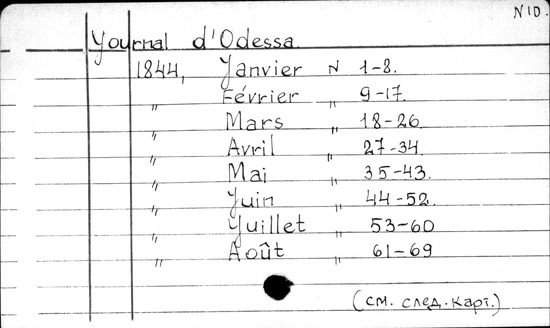 N10.
Yournal d'Odessa.
1844, Yanvier N 1-8.
" Février " 9-17.
" Mars " 18-26.
" Avril " 27-34.
" Mai " 35-43.
" Yuin " 44-52.
" Yuillet " 53-60
" Août " 61-69
(см. след. карт.)